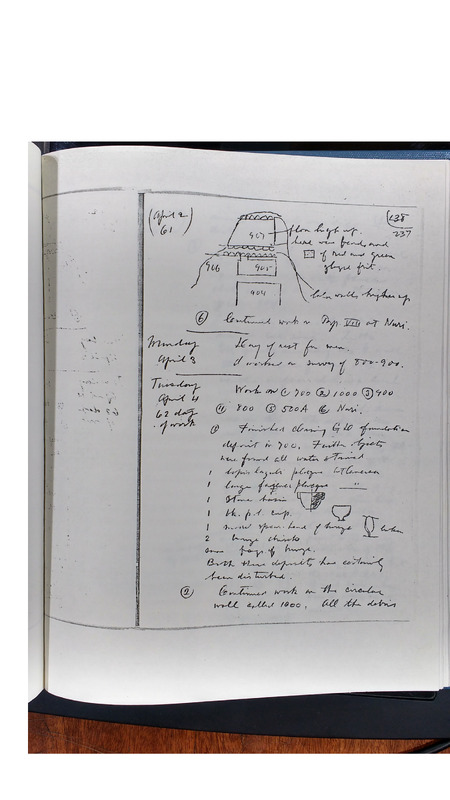 (April 2
61)
238
237
floor high up.
here were found
of red and green
glazed frit.
907
906
905
904
walls higher up
⑥ Continued work on Pyr. VIII at Nuri.
Monday Day of rest for men.
April 3 I worked on survey of 800-900.
Tuesday Work on ① 700 ② 1000 ③ 900
April 4 ④ 800 ⑤ 500A ⑥ Nuri.
62 day
of work
① Finished clearing foundation
deposit in 700. Further objects
were found all water
1 lapis lazuli plaque
1 large plaque "
1 Stone basin
1 cup.
1 spear-head of bronze
2 bronze
some frags of bronze.
Both these deposits had certainly
been disturbed.
② Continued work on the circular
wall called 1000. All the debris